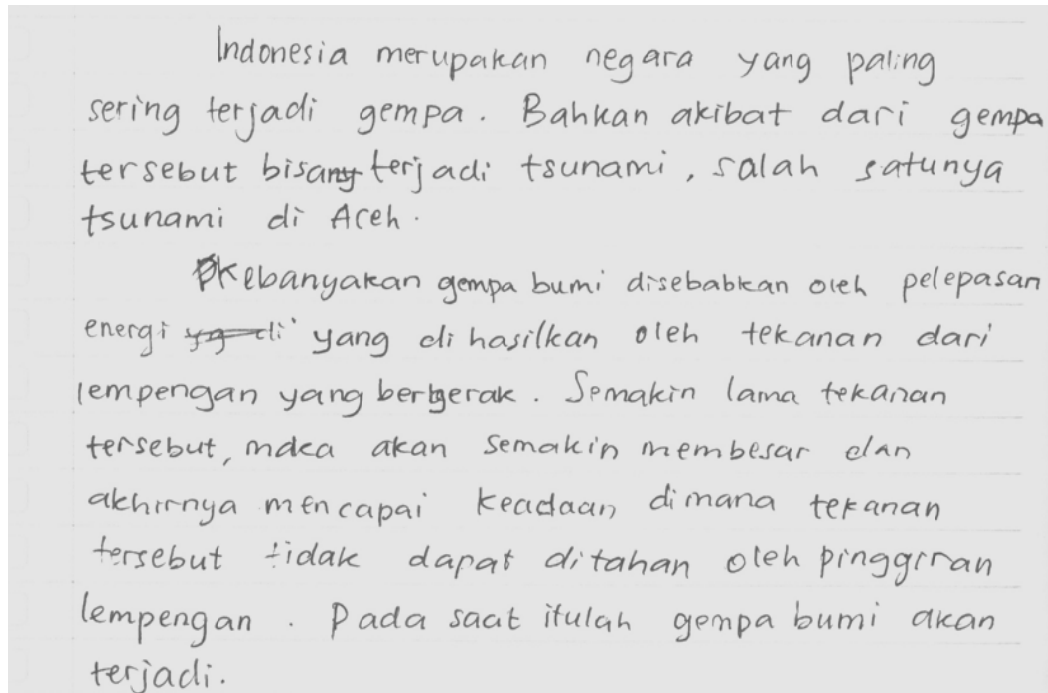 Indonesia merupakan negara yang paling
sering terjadi gempa. Bahkan akibat dari gempa
tersebut bisa terjadi tsunami, salah satunya
tsunami di Aceh.
Kebanyakan gempa bumi disebabkan oleh pelepasan
energi yang di hasilkan oleh tekanan dari
lempengan yang bergerak. Semakin lama tekanan
tersebut, maka akan semakin membesar dan
akhirnya mencapai keadaan dimana tekanan
tersebut tidak dapat ditahan oleh pinggiran
lempengan. Pada saat itulah gempa bumi akan
terjadi.